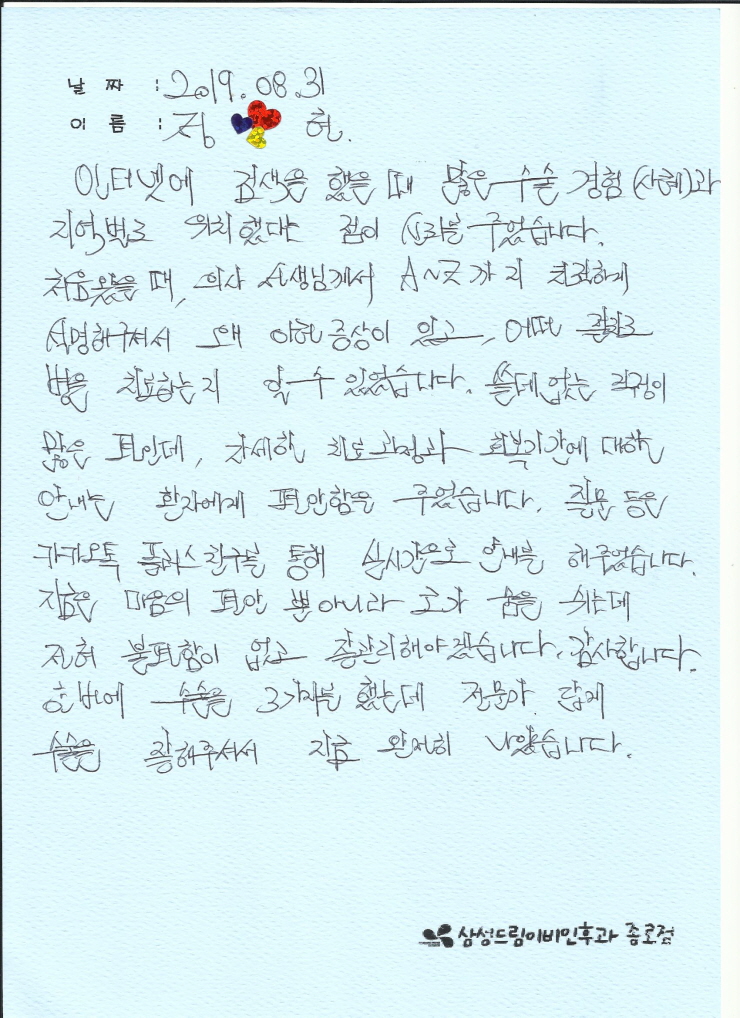 날 짜 : 2019.08.31
이 름 : 정 현.
인터넷에 검색을 했을 때 많은 수술 경험(사례)과
지역별로 위치했다는 점이 신뢰를 주었습니다.
처음 왔을 때, 의사 선생님께서 A~Z까지 친절하게
설명해주셔서 왜 이런 증상이 있고, 어떤 절차로
병을 치료하는지 알 수 있었습니다. 쓸데없는 걱정이
많은 편인데, 자세한 치료과정과 회복기간에 대한
안내는 환자에게 편안함을 주었습니다. 질문 등은
카카오톡 플러스친구를 통해 실시간으로 안내를 해주었습니다.
지금은 마음의 편안 뿐아니라 코가 숨을 쉬는데
전혀 불편함이 없고 잘관리해야겠습니다. 감사합니다.
한번에 수술을 3가지를 했는데 전문가 답게
수술을 잘해주셔서 지금 완전히 나았습니다.
삼성드림이비인후과 종로점